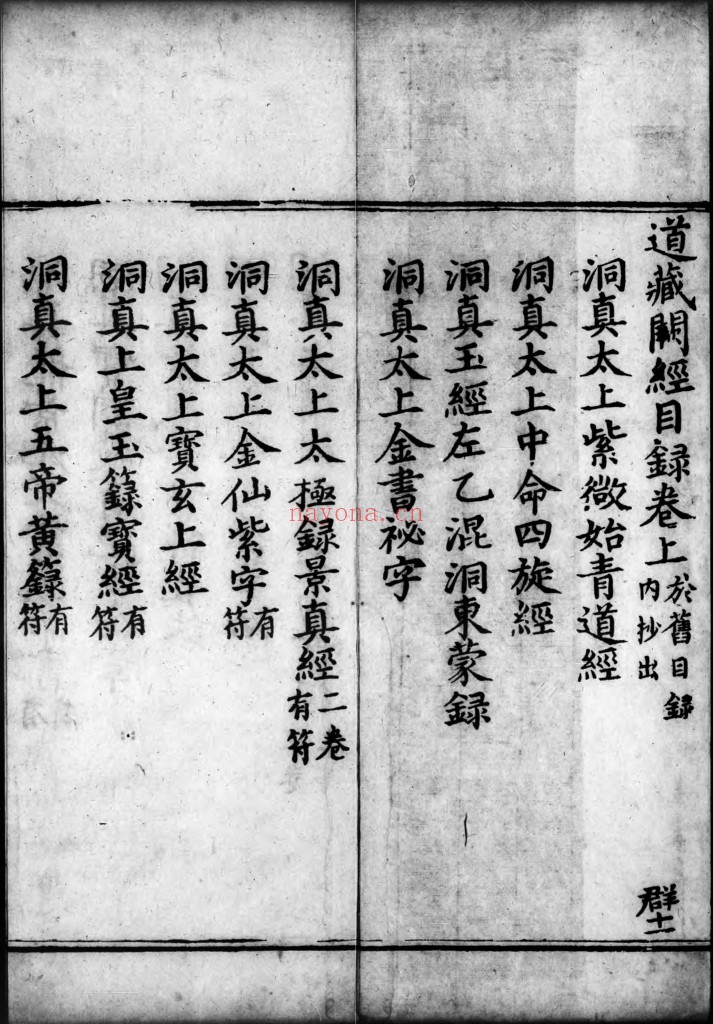 道藏闕經目録卷上 於舊目録内抄出 群十一
洞真太上紫微始青道經
洞真太上中命四旋經
洞真玉經左乙混洞東蒙録
洞真太上金書祕字
洞真太上太極録景真經 二卷有符
洞真太上金仙紫字 有符
洞真太上寶玄上經
洞真上皇玉籙寶經 有符
洞真太上五帝黄籙 有符
nayona.cn